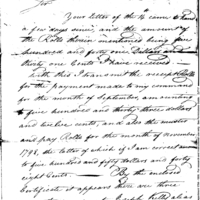 Sir
Your letter of the 4th came to hand
a few days since, and the amount of
the Rolls therein mentioned being five
hundred and forty one Dollars and
thirty one Cents I have received.
With this I transmit the receipt Rolls
for the payment made to my command
for the month of September, amounting
to five hundred and thirty three dollars
and twelve cents, and also the muster
and pay Rolls for the month of November
1793, the latter of which if I am correct amounts
to five hundred and fifty dollars and forty
eight Cents. By the enclosed
Certificate it appears there are three
Joseph